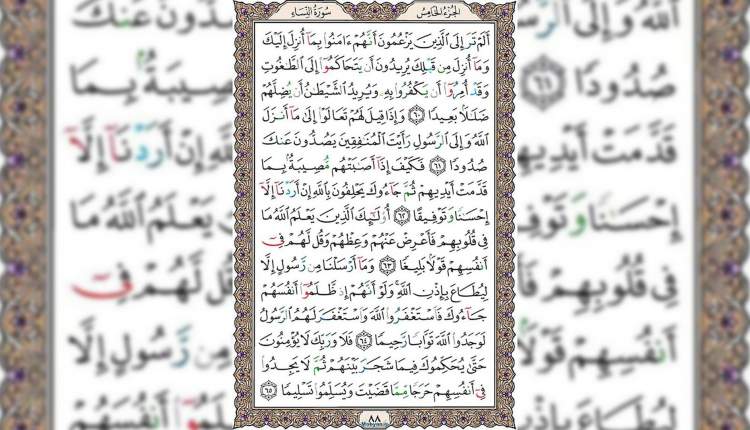 الجُزءُ الخَامِسُ
سُورَةُ النِّسَاءِ
أَلَمْ تَرَ إِلَى ٱلَّذِينَ يَزْعُمُونَ أَنَّهُمْ ءَامَنُوا۟ بِمَآ أُنزِلَ إِلَيْكَ
وَمَآ أُنزِلَ مِن قَبْلِكَ يُرِيدُونَ أَن يَتَحَاكَمُوٓا۟ إِلَى ٱلطَّٰغُوتِ
وَقَدْ أُمِرُوٓا۟ أَن يَكْفُرُوا۟ بِهِۦ وَيُرِيدُ ٱلشَّيْطَٰنُ أَن يُضِلَّهُمْ
ضَلَٰلًۢا بَعِيدًا ٦٠ وَإِذَا قِيلَ لَهُمْ تَعَالَوْا۟ إِلَىٰ مَآ أَنزَلَ
ٱللَّهُ وَإِلَى ٱلرَّسُولِ رَأَيْتَ ٱلْمُنَٰفِقِينَ يَصُدُّونَ عَنكَ
صُدُودًا ٦١ فَكَيْفَ إِذَآ أَصَٰبَتْهُم مُّصِيبَةٌۢ بِمَا
قَدَّمَتْ أَيْدِيهِمْ ثُمَّ جَآءُوكَ يَحْلِفُونَ بِٱللَّهِ إِنْ أَرَدْنَآ إِلَّآ
إِحْسَٰنًا وَتَوْفِيقًا ٦٢ أُو۟لَٰٓئِكَ ٱلَّذِينَ يَعْلَمُ ٱللَّهُ مَا
فِى قُلُوبِهِمْ فَأَعْرِضْ عَنْهُمْ وَعِظْهُمْ وَقُل لَّهُمْ فِىٓ
أَنفُسِهِمْ قَوْلًۢا بَلِيغًا ٦٣ وَمَآ أَرْسَلْنَا مِن رَّسُولٍ إِلَّا
لِيُطَاعَ بِإِذْنِ ٱللَّهِ وَلَوْ أَنَّهُمْ إِذ ظَّلَمُوٓا۟ أَنفُسَهُمْ
جَآءُوكَ فَٱسْتَغْفَرُوا۟ ٱللَّهَ وَٱسْتَغْفَرَ لَهُمُ ٱلرَّسُولُ
لَوَجَدُوا۟ ٱللَّهَ تَوَّابًا رَّحِيمًا ٦٤ فَلَا وَرَبِّكَ لَا يُؤْمِنُونَ
حَتَّىٰ يُحَكِّمُوكَ فِيمَا شَجَرَ بَيْنَهُمْ ثُمَّ لَا يَجِدُوا۟
فِىٓ أَنفُسِهِمْ حَرَجًا مِّمَّا قَضَيْتَ وَيُسَلِّمُوا۟ تَسْلِيمًا ٦٥
٨٨